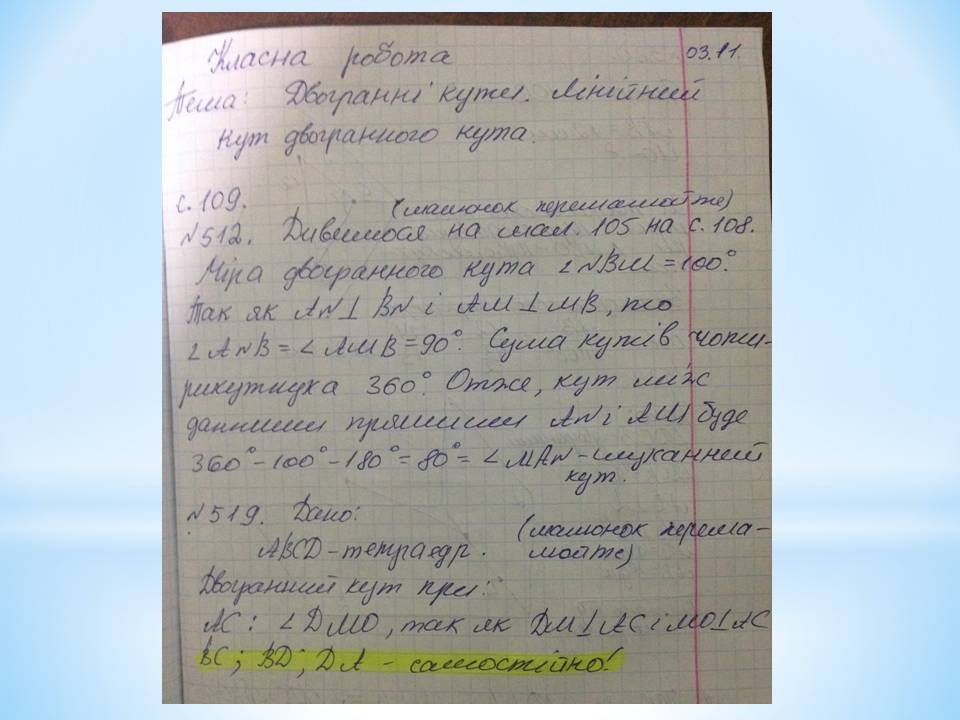 Класна робота 03.11.
Тема: Двогранні кути. Лінійний
кут двогранного кута.
с. 109.
(малюнок перемалюйте)
№512. Дивимося на мал. 105 на с. 108.
Міра двогранного кута ∠NBM = 100°.
Так як AN⊥BN і AM⊥MB, то
∠ANB = ∠AMB = 90°. Сума кутів чоти-
рикутника 360°. Отже, кут між
данними прямими AN і AM буде
360° - 100° - 180° = 80° = ∠MAN - шуканний
кут.
№519. Дано: (малюнок перема-
ABCD - тетраедр. люйте)
Двогранний кут при:
AC: ∠DMO, так як DM⊥AC і MO⊥AC
BC; BD; DA - самостійно!